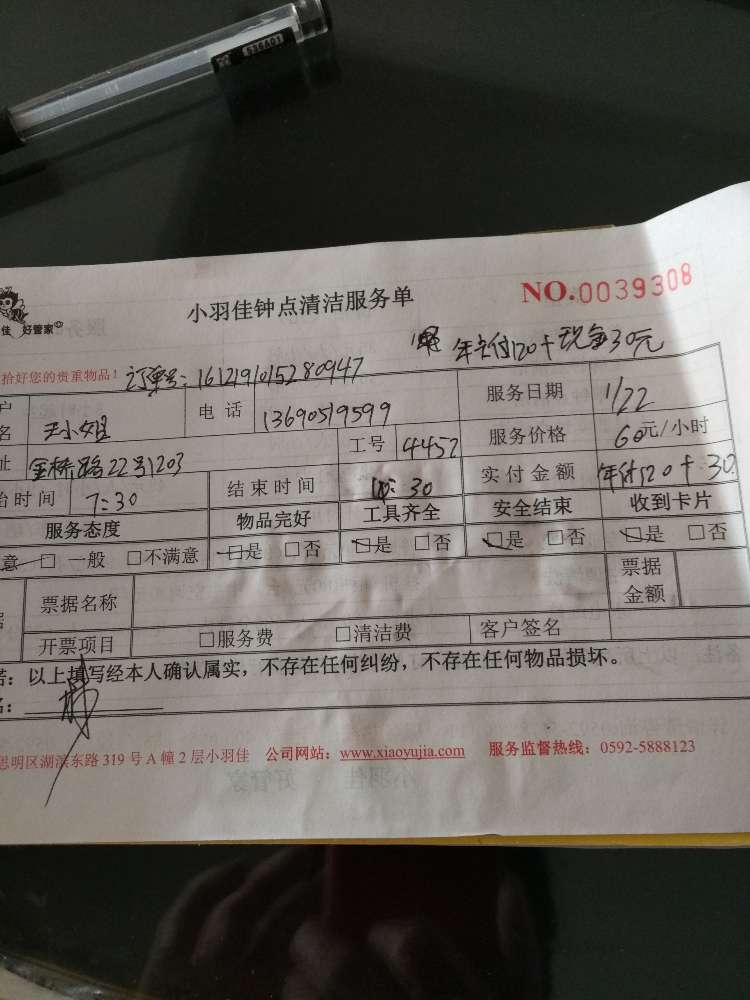 536A01
小羽佳钟点清洁服务单
NO.0039308
佳 好管家
年卡付120+现金30元
拾好您的贵重物品! 订单号:1612191015280947
户 名 王小姐 电话 13690519599 服务日期 1/22
址 金桥路22号1203 工号 4457 服务价格 60元/小时
始时间 7:30 结束时间 10:30 实付金额 年付120+30
服务态度 物品完好 工具齐全 安全结束 收到卡片
意 □一般 □不满意 □是 □否 □是 □否 □是 □否 □是 □否
票据名称 票据金额
开票项目 □服务费 □清洁费 客户签名
诺:以上填写经本人确认属实,不存在任何纠纷,不存在任何物品损坏。
名:
思明区湖滨东路319号A幢2层小羽佳 公司网站:www.xiaoyujia.com 服务监督热线:0592-5888123